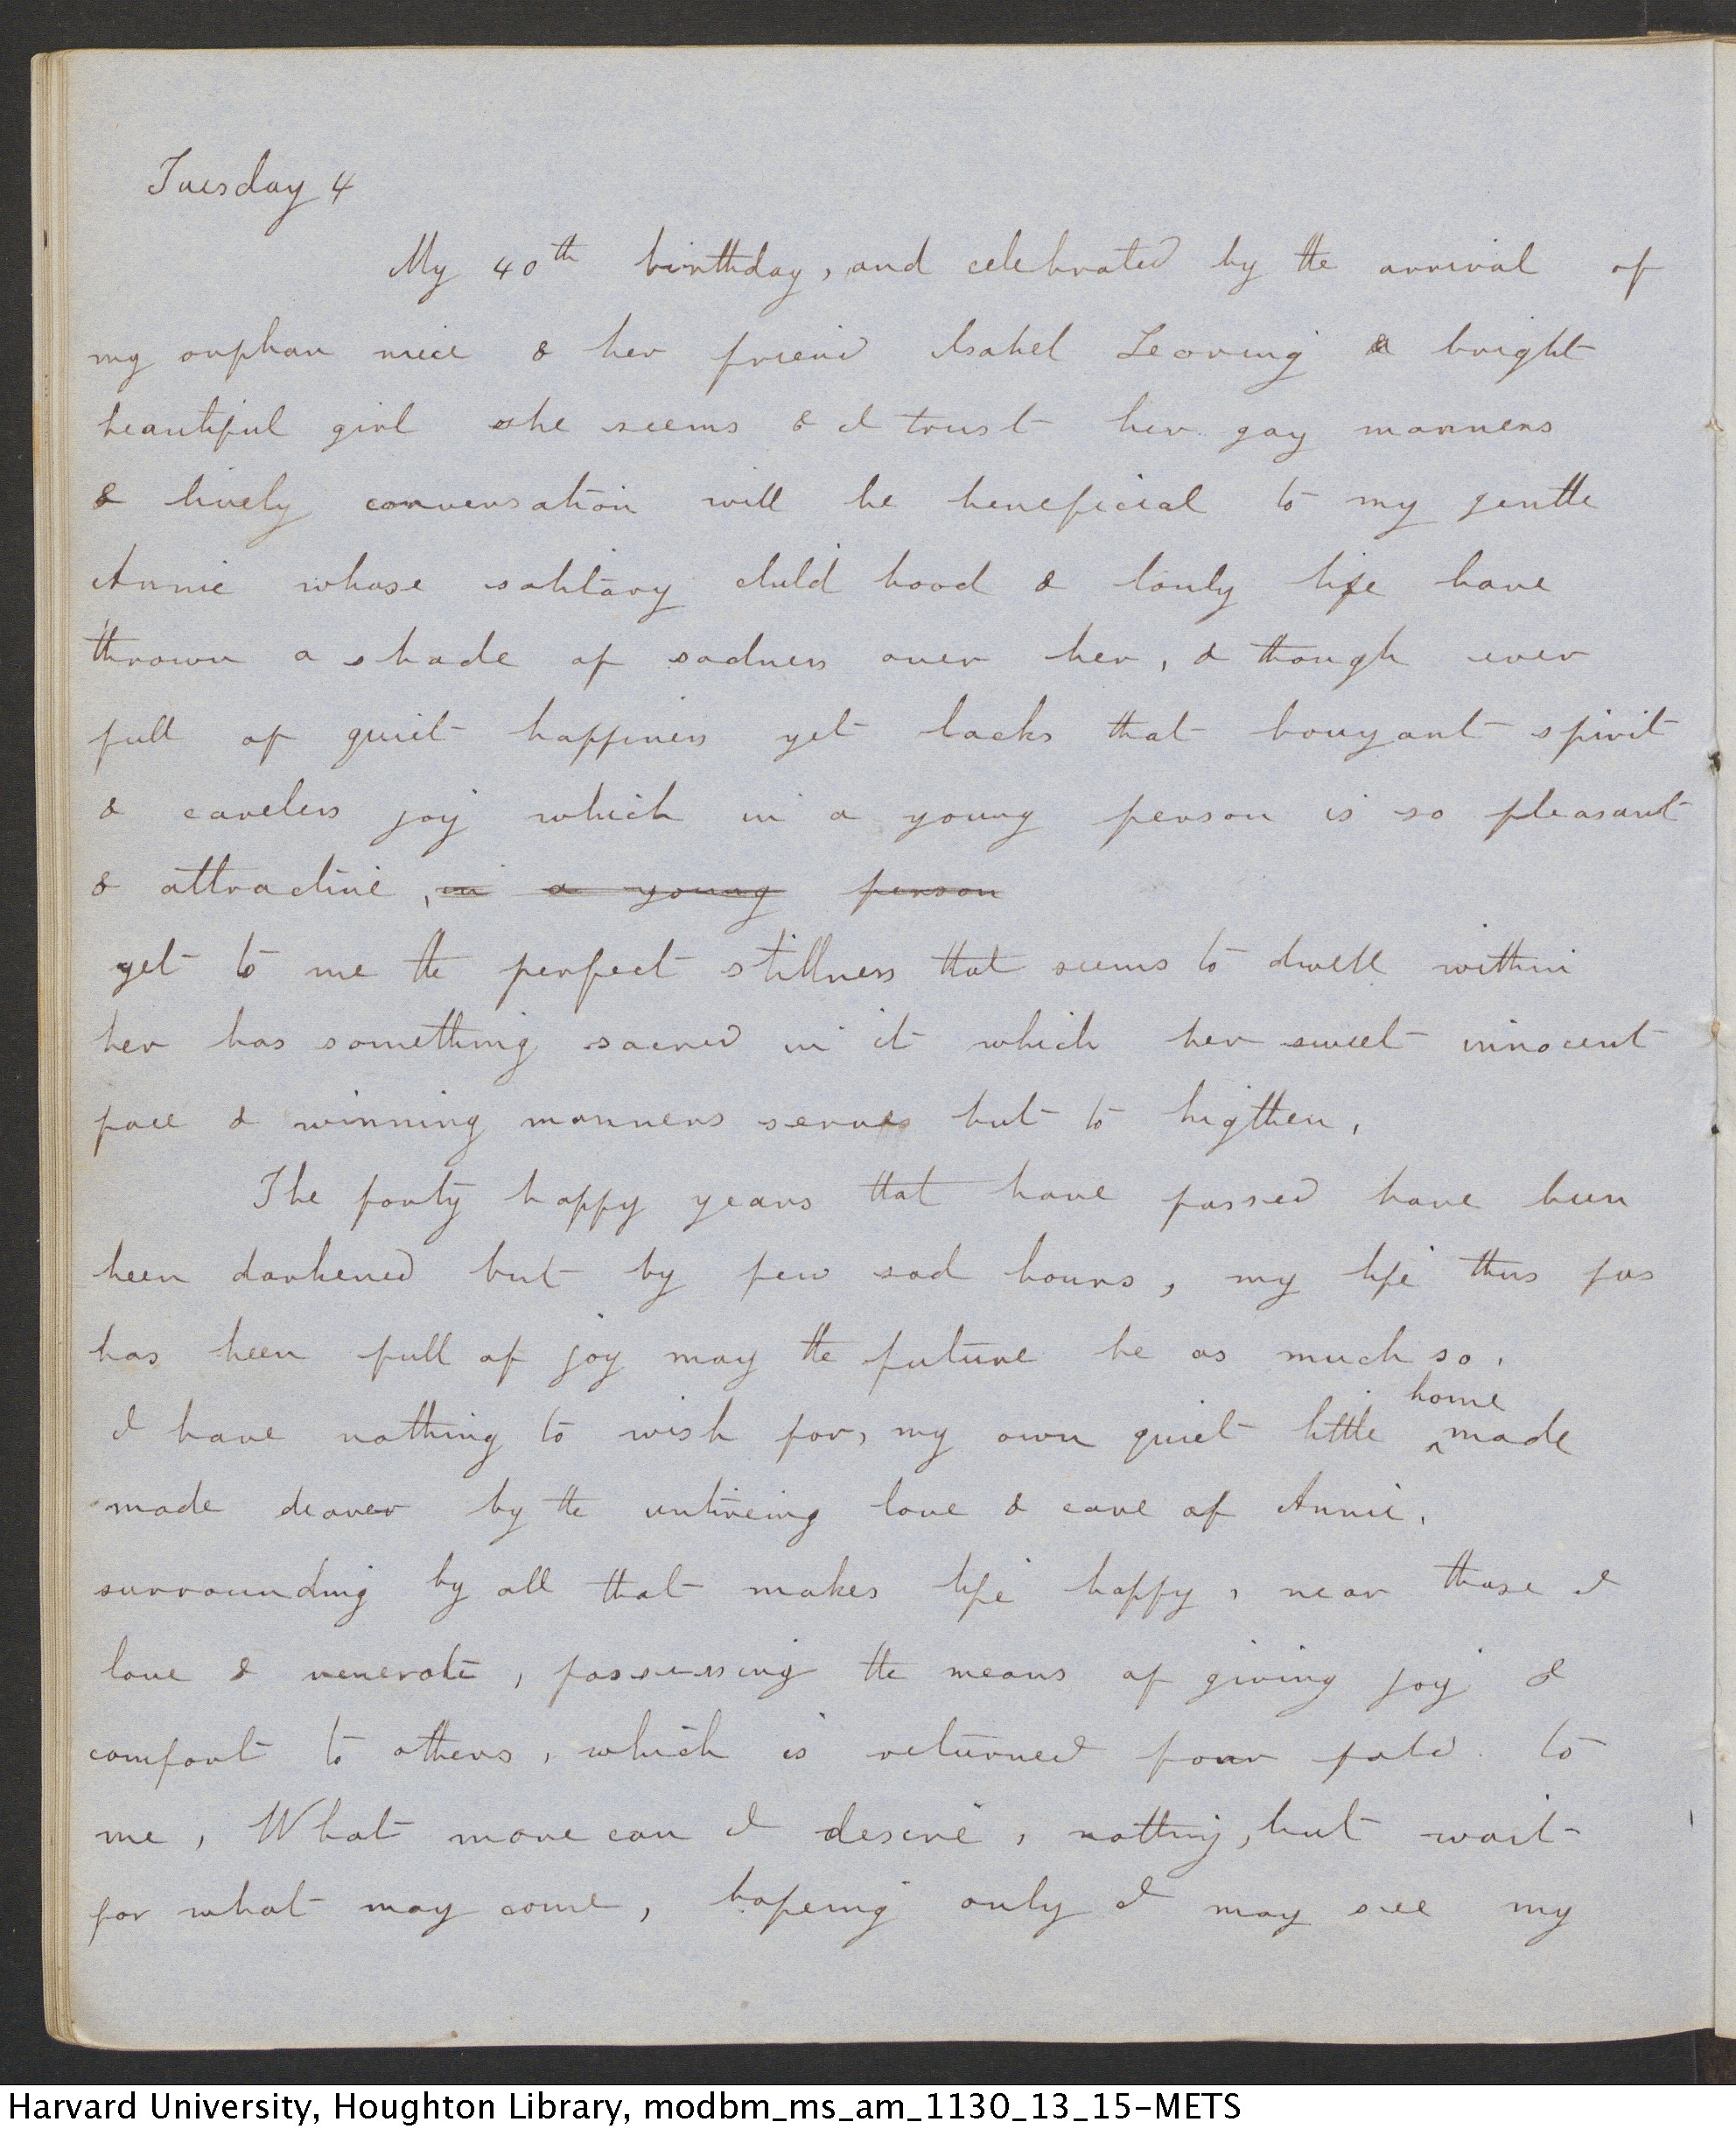 Tuesday 4
My 40th birthday, and celebrated by the arrival of
my orphan niece & her friend Isabel Leoring a bright
beautiful girl she seems & I trust her gay manners
& lively conversation will be beneficial to my gentle
Annie whose solitary child hood & lonly life have
thrown a shade of sadness over her, & though ever
full of quiet happiness yet lacks that bouyant spirit
& careless joy which in a young person is so pleasant
& attractive, in a young person
yet to me the perfect stillness that seems to dwell within
her has something sacred in it which her sweet innocent
face & winning manners serves but to higthen,
The forty happy years that have passed have been
been darkened but by few sad hours, my life thus far
has been full of joy may the future be as much so.
I have nothing to wish for, my own quiet little ^home made
made dearer by the untireing love & care of Annie,
surrounding by all that makes life happy, near those I
love & venerate, possessing the means of giving joy &
comfort to others, which is returned four fold to
me, What more can I desire, nothing, but wait
for what may come, hopeing only I may see my
Harvard University, Houghton Library, modbm_ms_am_1130_13_15-METS